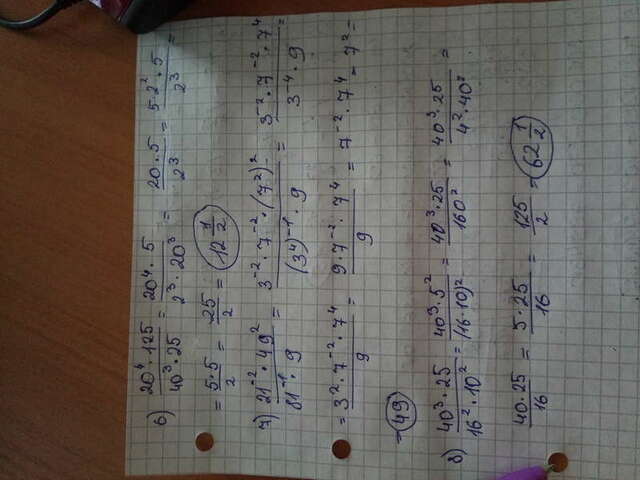 6) 20⁴·125/40³·25 = 20⁴·5/2³·20³ = 20·5/2³ = 5·2²·5/2³ =
= 5·5/2 = 25/2 = 12 1/2
7) 21⁻²·49²/81⁻¹·9 = 3⁻²·7⁻²·(7²)²/(3⁴)⁻¹·9 = 3⁻²·7⁻²·7⁴/3⁻⁴·9 =
= 3²·7⁻²·7⁴/9 = 9·7⁻²·7⁴/9 = 7⁻²·7⁴ = 7² =
= 49
8) 40³·25/16²·10² = 40³·5²/(16·10)² = 40³·25/160² = 40³·25/4²·40² =
40·25/16 = 5·25/16 = 125/2 = 62 1/2